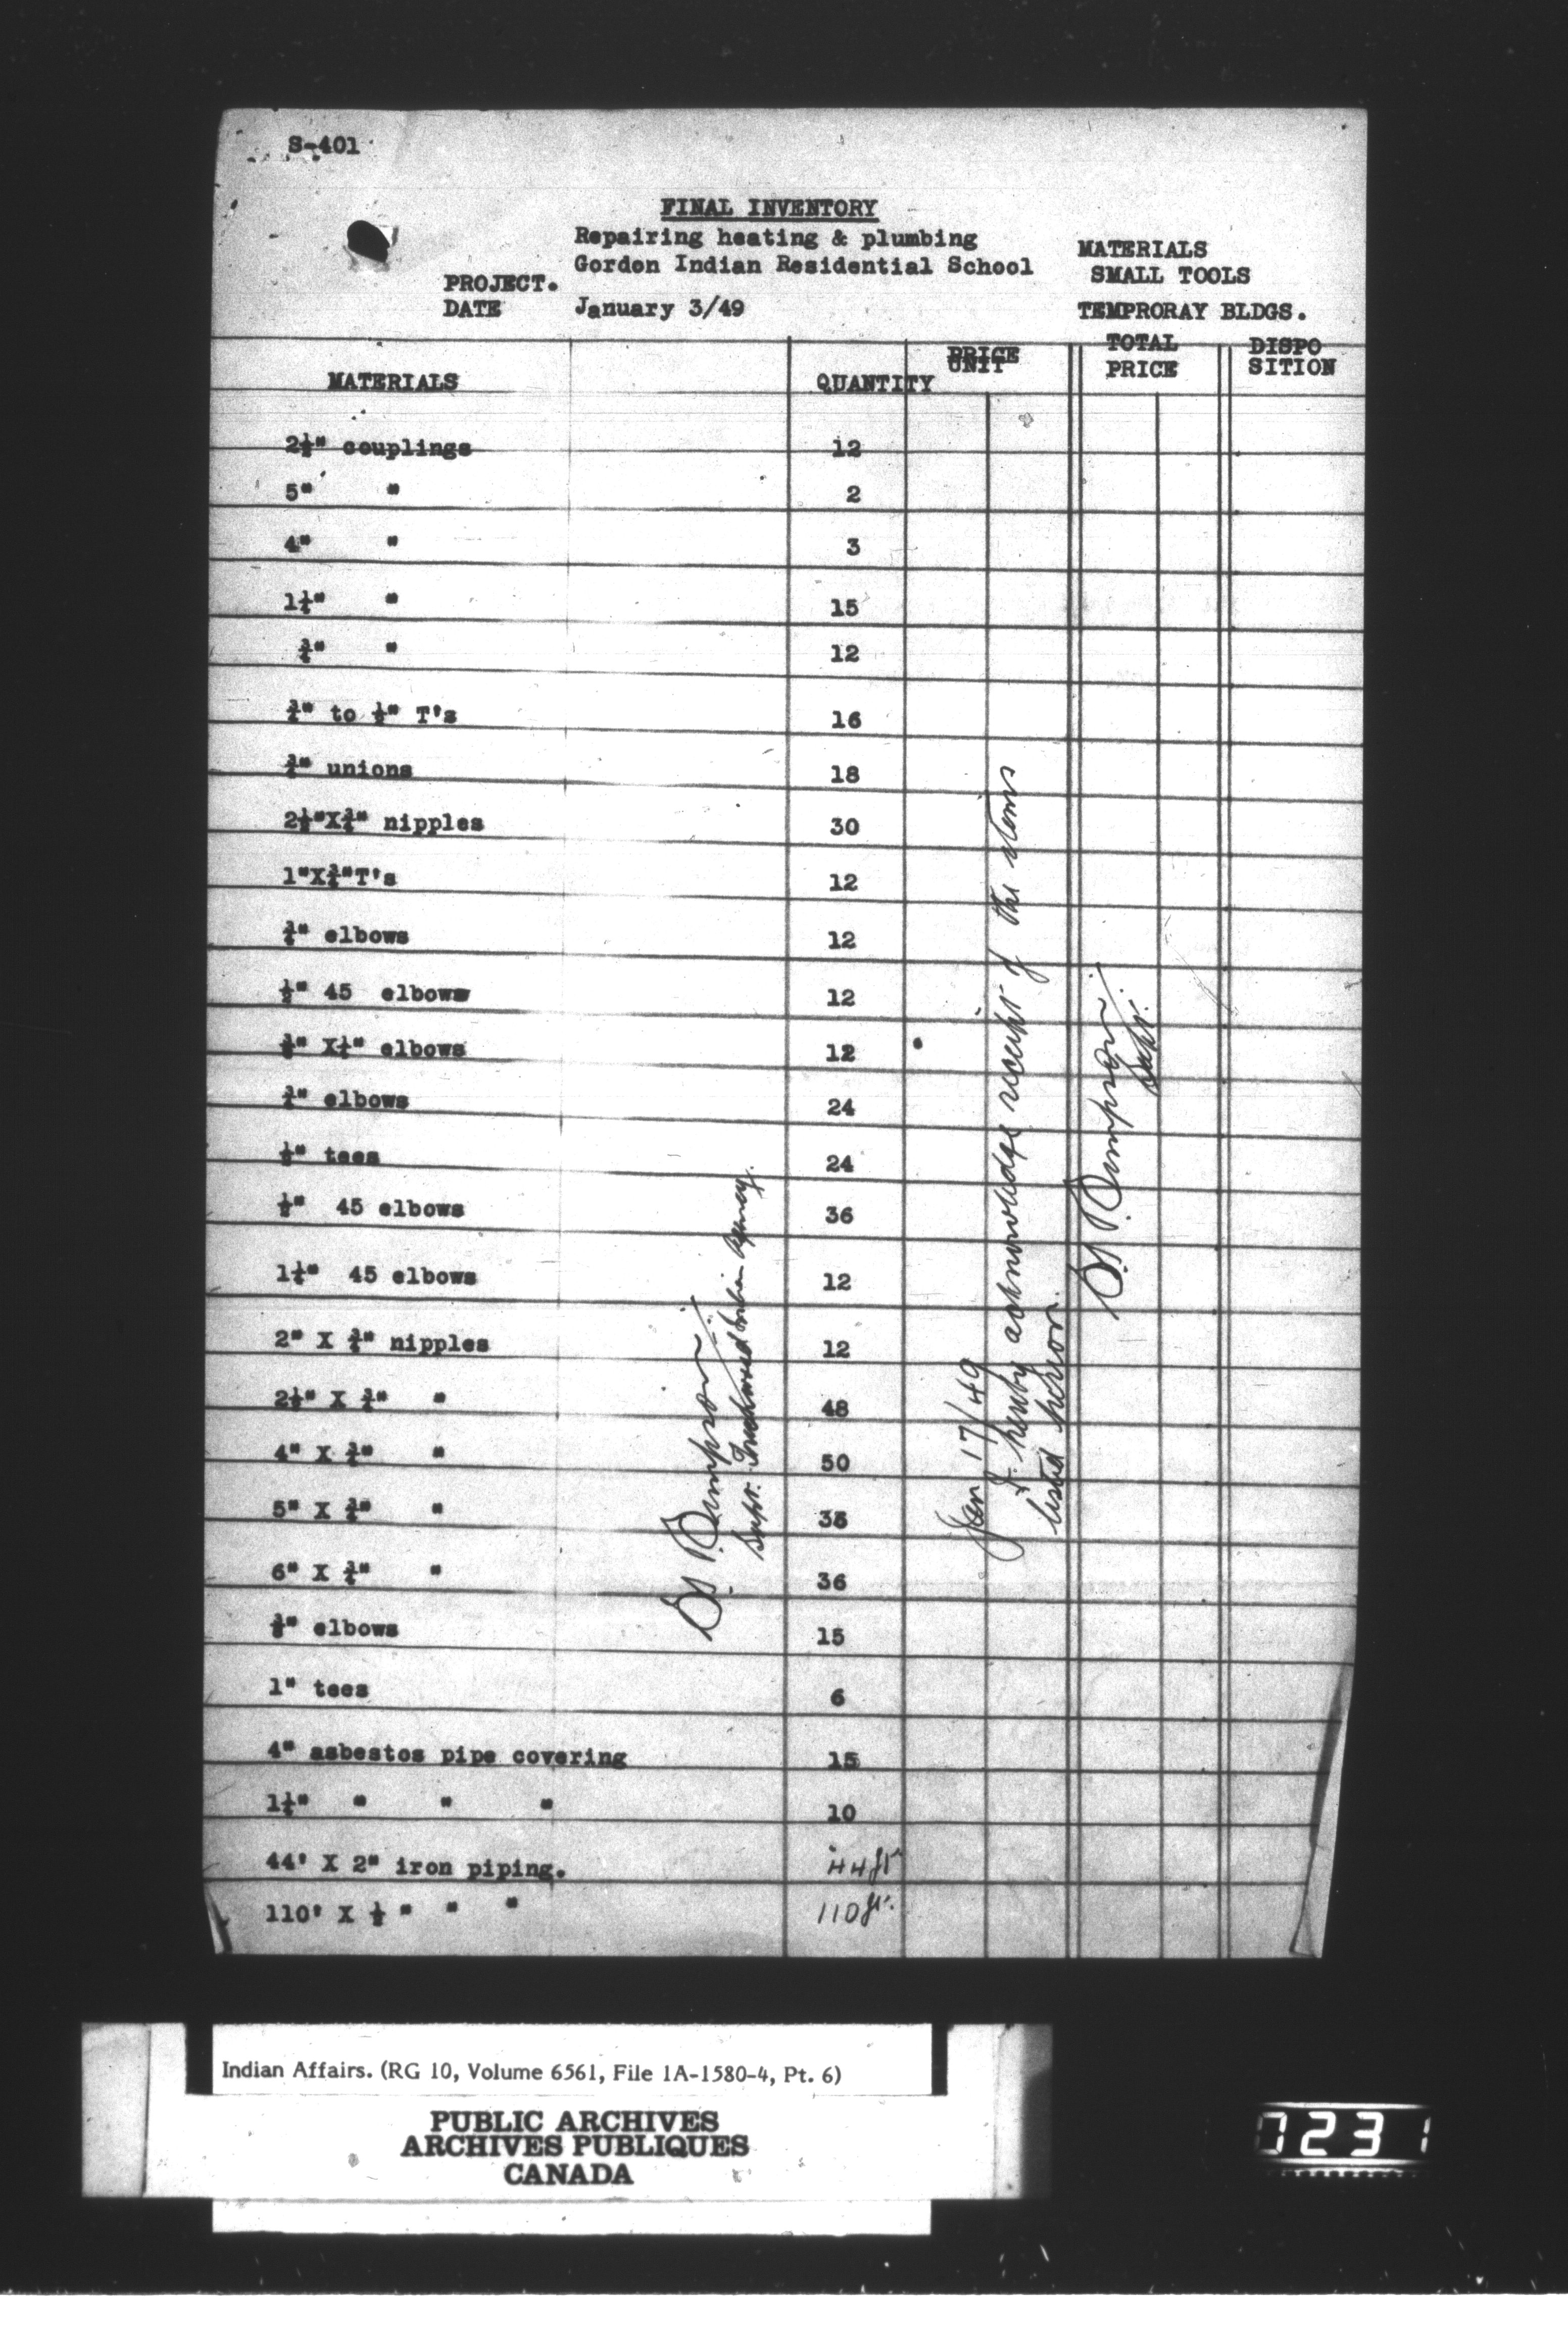 S-401
FINAL INVENTORY
Repairing heating & plumbing
Gordon Indian Residential School
PROJECT.
DATE January 3/49
MATERIALS
SMALL TOOLS
TEMPRORAY BLDGS.
MATERIALS QUANTITY PRICE UNIT TOTAL PRICE DISPO SITION
2½" couplings 12
5" " 2
4" " 3
1¼" " 15
¾" " 12
¾" to ½" T's 16
¾" unions 18
2½"X¾" nipples 30
1"X¾"T's 12
¾" elbows 12
½" 45 elbows 12
elbows 12
¾" elbows 24
½" tees 24
½" 45 elbows 36
1¼" 45 elbows 12
2" X ¾" nipples 12
2½" X ¾" " 48
4" X ¾" " 50
5" X ¾" " 36
6" X ¾" " 36
elbows 15
1" tees 6
4" asbestos pipe covering 15
1¼" " " " 10
44' X 2" iron piping. 44 ft
110' X ½ " " " 110 ft.
Supt. Touchwood Indian Agency.
Jan 17/49
I hereby acknowledge receipt of the items
listed hereon.
Supt.
Indian Affairs. (RG 10, Volume 6561, File 1A-1580-4, Pt. 6)
PUBLIC ARCHIVES
ARCHIVES PUBLIQUES
CANADA
0231